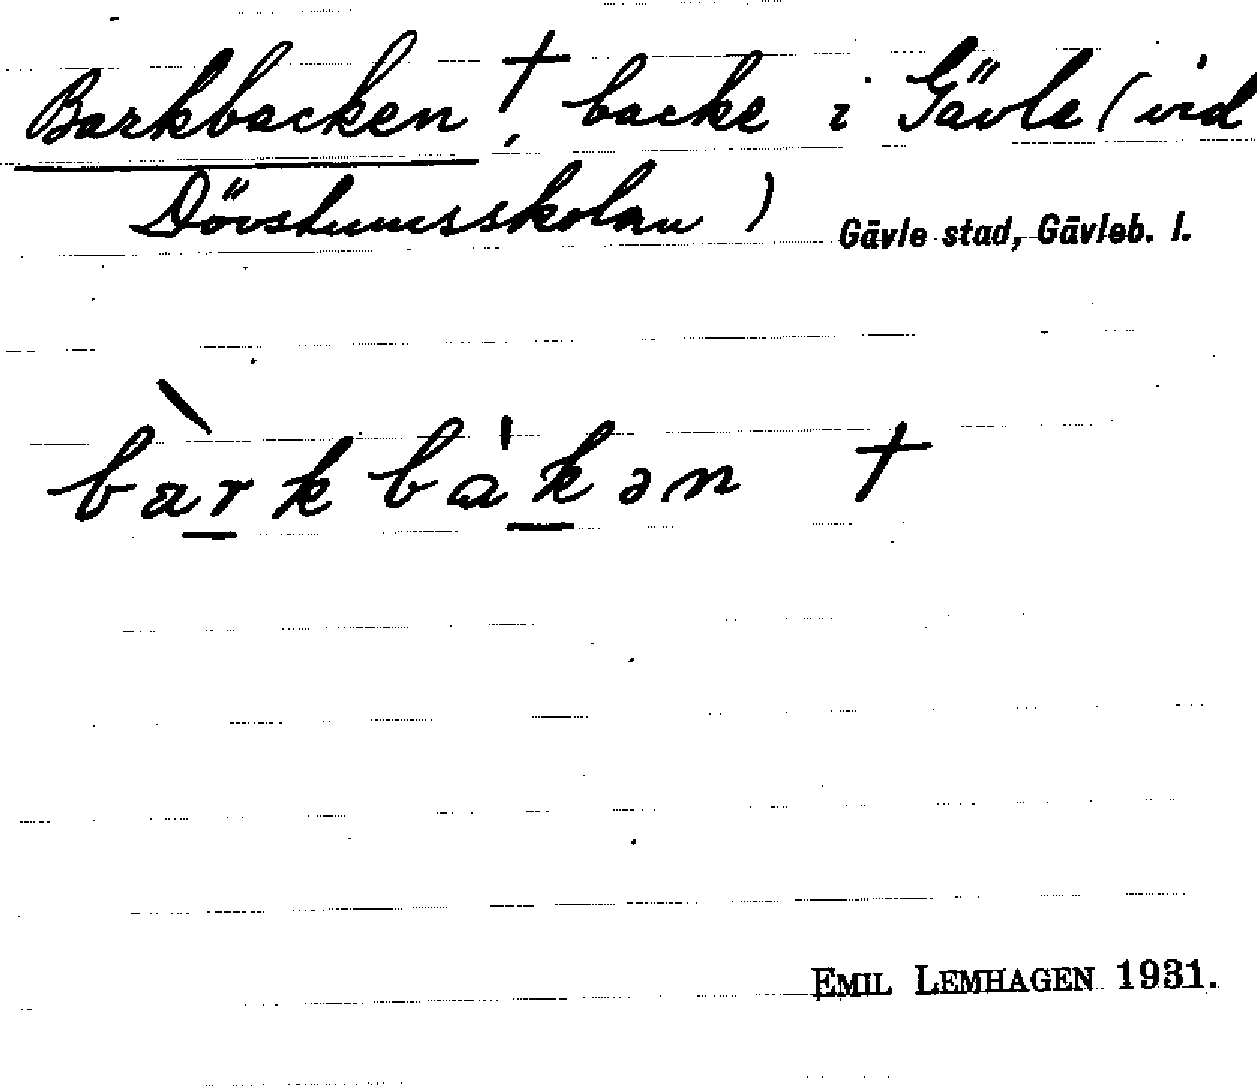 Barkbacken †, backe i Gävle (vid
Dövstumsskolan)
Gävle stad, Gävleb. l.
bàrkbákən †
EMIL LEMHAGEN 1931.